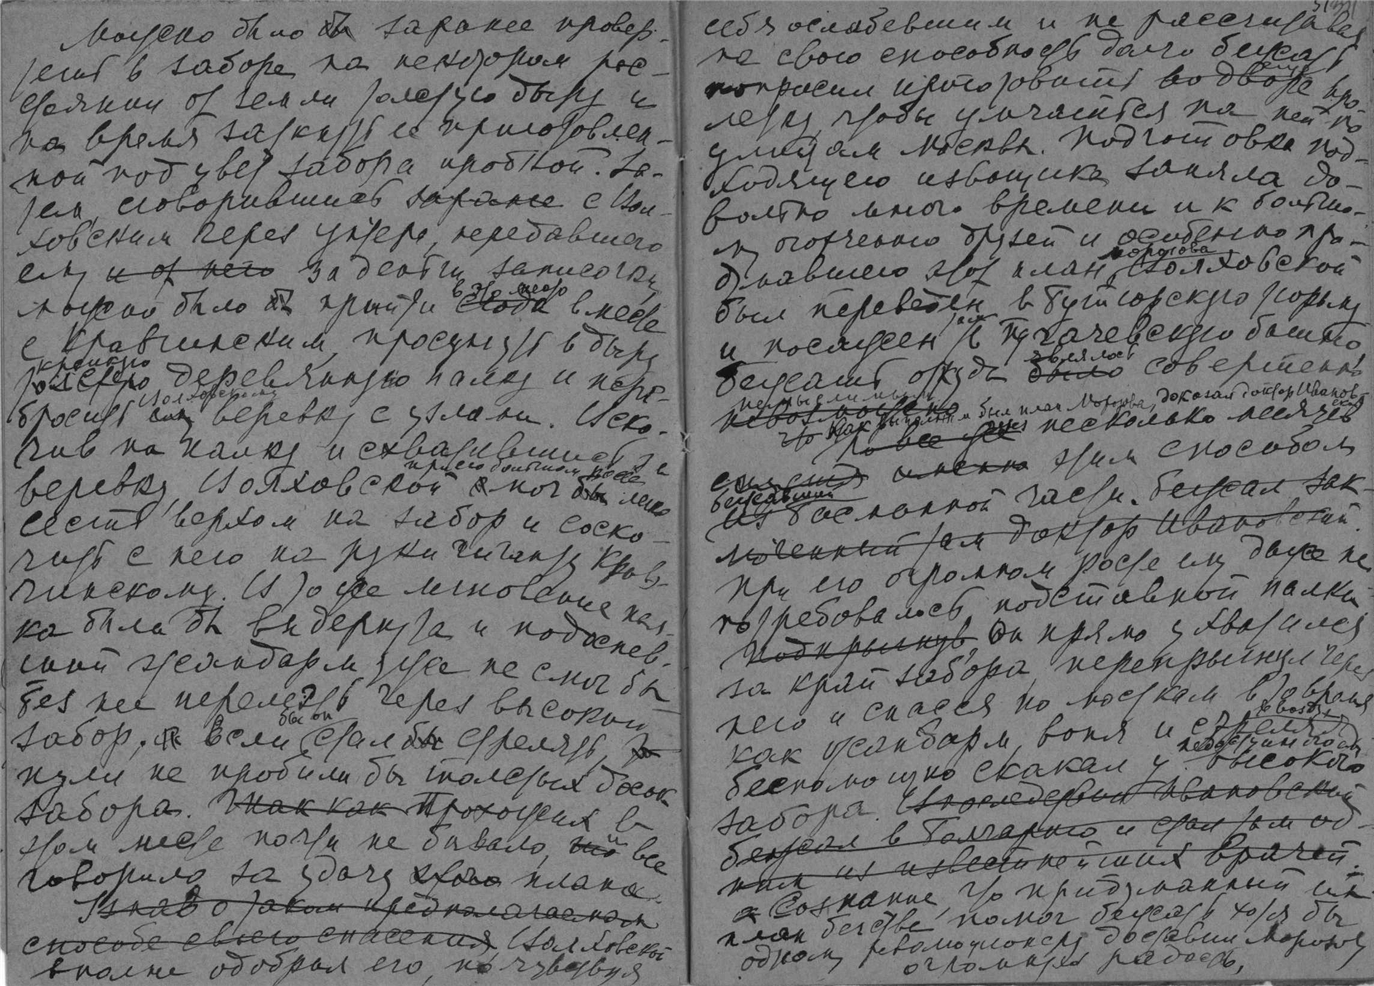 Можно было бы заранее провер-
теть в заборе на некотором рас-
стоянии от земли толстую дыру и
на время заткнуть ее приготовлен-
ной под цвет забора пробкой. За-
тем, сговорившись заранее с Вол-
ховским через унтера, передавшего
ему и от него за деньги записочки,
можно было бы придти в это место сюда вместе
с Кравчинским, просунуть в дыру
крепкую толстую деревянную палку и пере-
бросить Волховскому ему веревку с узлами. Вско-
чив на палку и схватившись за
веревку, Волховской при его большом росте мог бы легко
сесть верхом на забор и соско-
чить с него на руки гиганту Крав-
чинскому. В то же мгновение пал-
ка была бы выдернута и подоспев-
ший жандарм уже не смог бы
без нее перелезть через высокий
забор, а если бы он стал бы стрелять, то
пули не пробили бы толстых досок
забора. Так как Прохожих в
этом месте почти не бывало, то все
говорило за удачу этого плана.
Узнав о таком предполагаемом
способе своего спасения Волховской
вполне одобрил его, но чувствуя
себя ослабевшим и не рассчитывая
на свою способность долго бежать
попросил приготовить ему во дворе про-
летку, чтобы умчаться на ней по
улицам Москвы. Подготовка под-
ходящего извощика заняла до-
вольно много времени и к большо-
му огорчению друзей и особенно при-
думавшего этот план Морозова Волховской
был переведен в Бутырскую тюрьму
и посажен там в Пугачевскую башню
бежать откуда являлось было совершенно
немыслимым невозможно
Что как выполним был план Морозова, доказал доктор Ивановский
но все же несколько месяцев
спустя именно этим способом
бежавший из басманной части. Бежал зак-
люченный там доктор Ивановский.
При его огромном росте ему даже не
потребовалось подставной палки
Подпрыгнув, Он прямо ухватился
за край забора, перепрыгнул через
него и спасся по мосткам в то время
как жандарм, вопя и стреляя в воздух,
беспомощно скакал у недоступного высокого
забора. Впоследствии Ивановский
бежал в Болгарию и стал там од-
ним из известнейших врачей.
а Сознание, что придуманный им
план бегства помог бежать хотя бы
одному революционеру доставил Морозову
огромную радость.